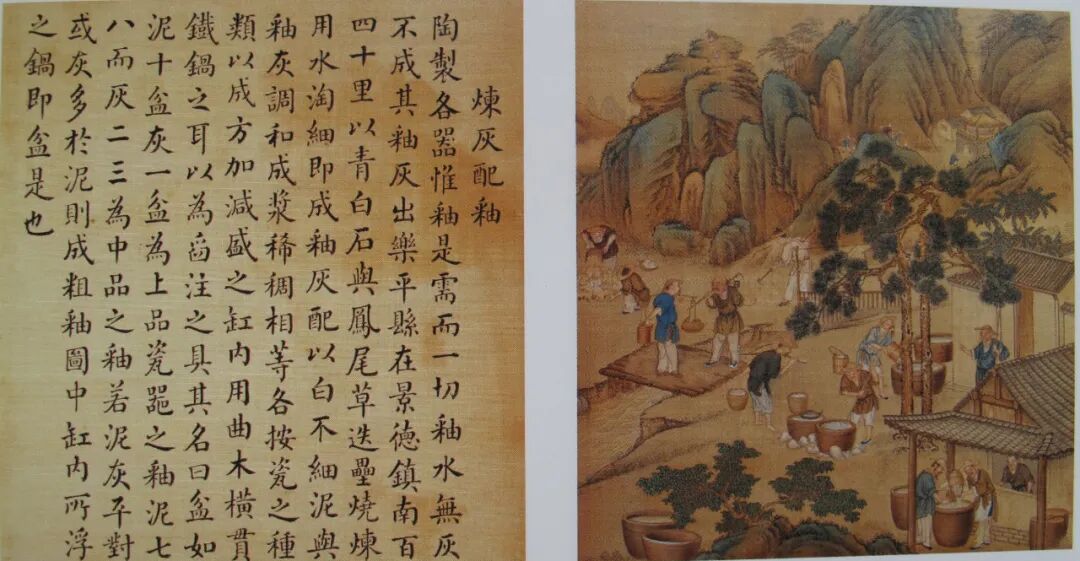 煉灰配釉
陶製各器惟釉是需而一切釉水無灰
不成其釉灰出樂平縣在景德鎮南百
四十里以青白石與鳳尾草迭疊燒煉
用水淘細即成釉灰配以白不細泥與
釉灰調和成漿稀稠相等各按瓷之種
類以成方加減盛之缸內用曲木橫貫
鐵鍋之耳以為舀注之具其名曰盆如
泥十盆灰一盆為上品瓷器之釉泥七
八而灰二三為中品之釉若泥灰平對
或灰多於泥則成粗釉圖中缸內所浮
之鍋即盆是也